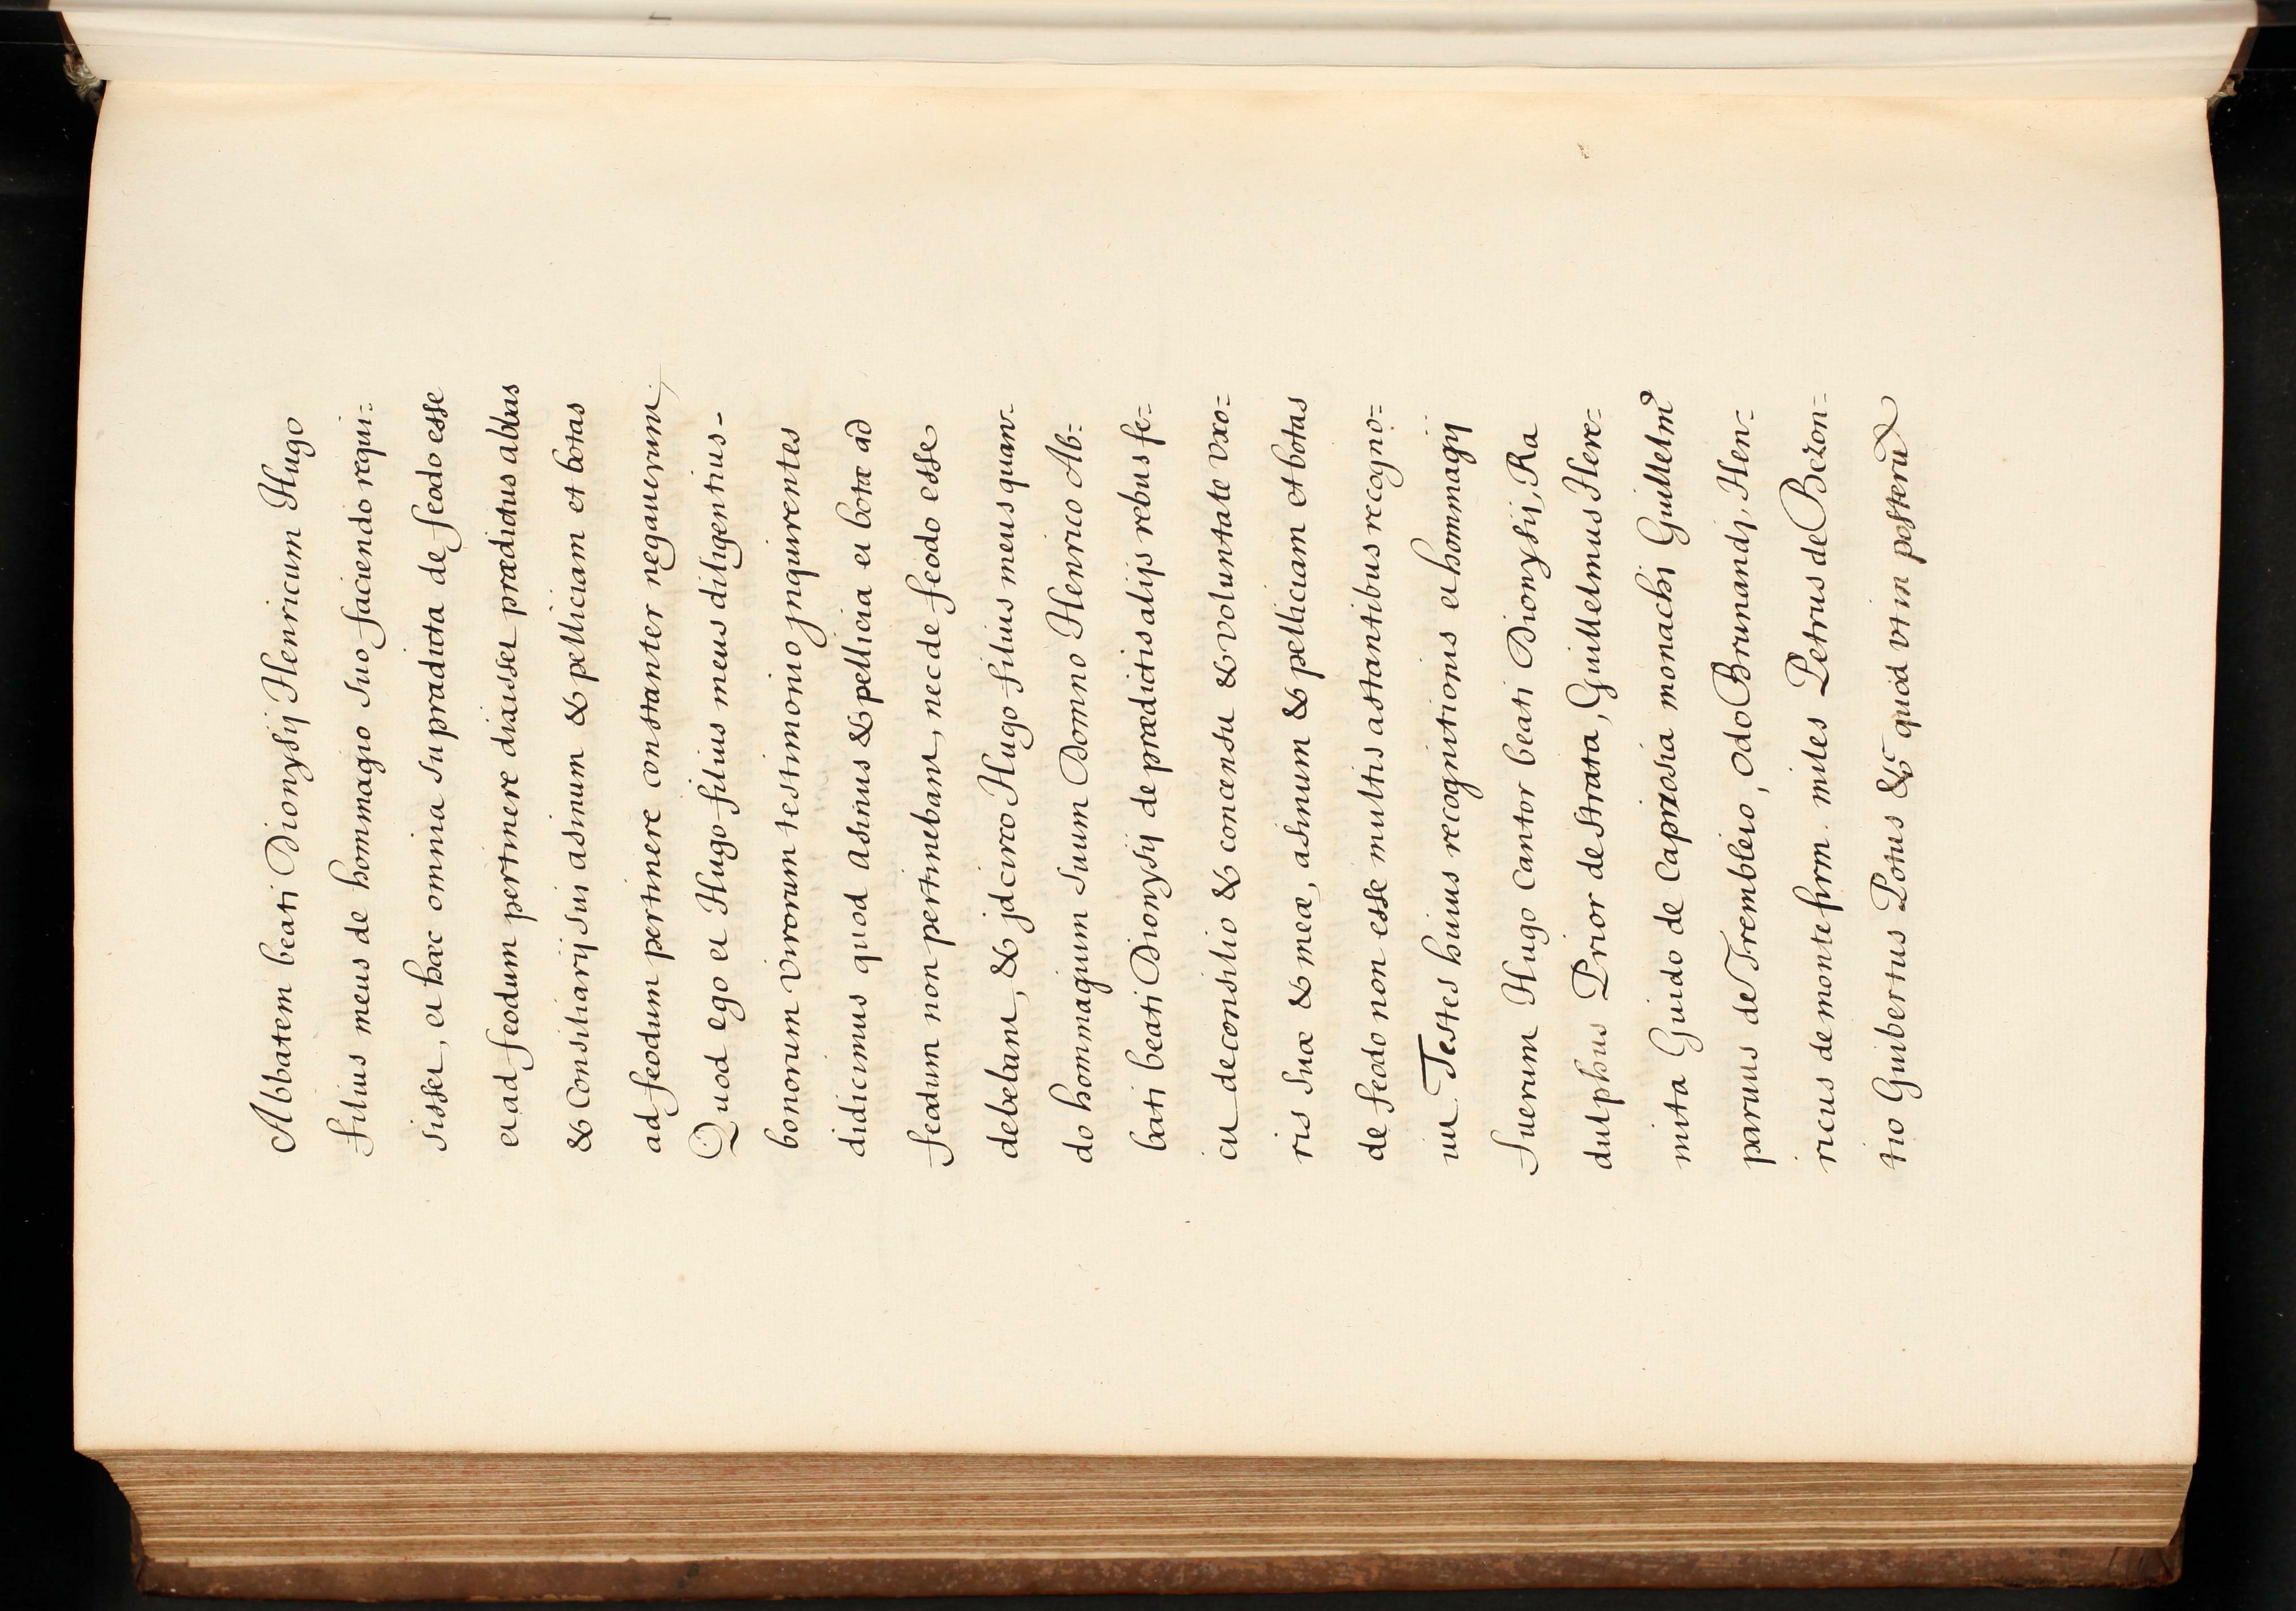 Abbatem beati Dionysij Henricum Hugo
filius meus de hommagio suo faciendo requi=
sisset, et hæc omnia supradicta de feodo esse
et ad feodum pertinere dixisset prædictus abbas
& Consiliarij sui asinum & pelliciam et botas
ad feodum pertinere constanter negauerunt,
Quod ego et Hugo filius meus diligentius-
bonorum virorum testimonio jnquirentes
didicimus quod asinus & pellicia et botæ ad
feodum non pertinebant, nec de feodo esse
debebant, & jdcirco Hugo filius meus quan=
do hommagium suum Domno Henrico Ab=
bati beati Dionysij de prædictis alijs rebus fe=
cit de consilio & concensu & voluntate vxo=
ris suæ & meæ, asinum & pelliciam et botas
de feodo non esse multis astantibus recogno=
uit. Testes huius recognitionis et hommagij
fuerunt Hugo Cantor beati Dionysij, Ra
dulphus Prior de Strata, Guillelmus Here=
mita Guido de Caprosia monachi Guillelm9
paruus de Trembleio, Odo Brunandj, Hen=
ricus de monte firm. miles Petrus de Bezon=
tio Guibertus Potus &c quod vt in posterū